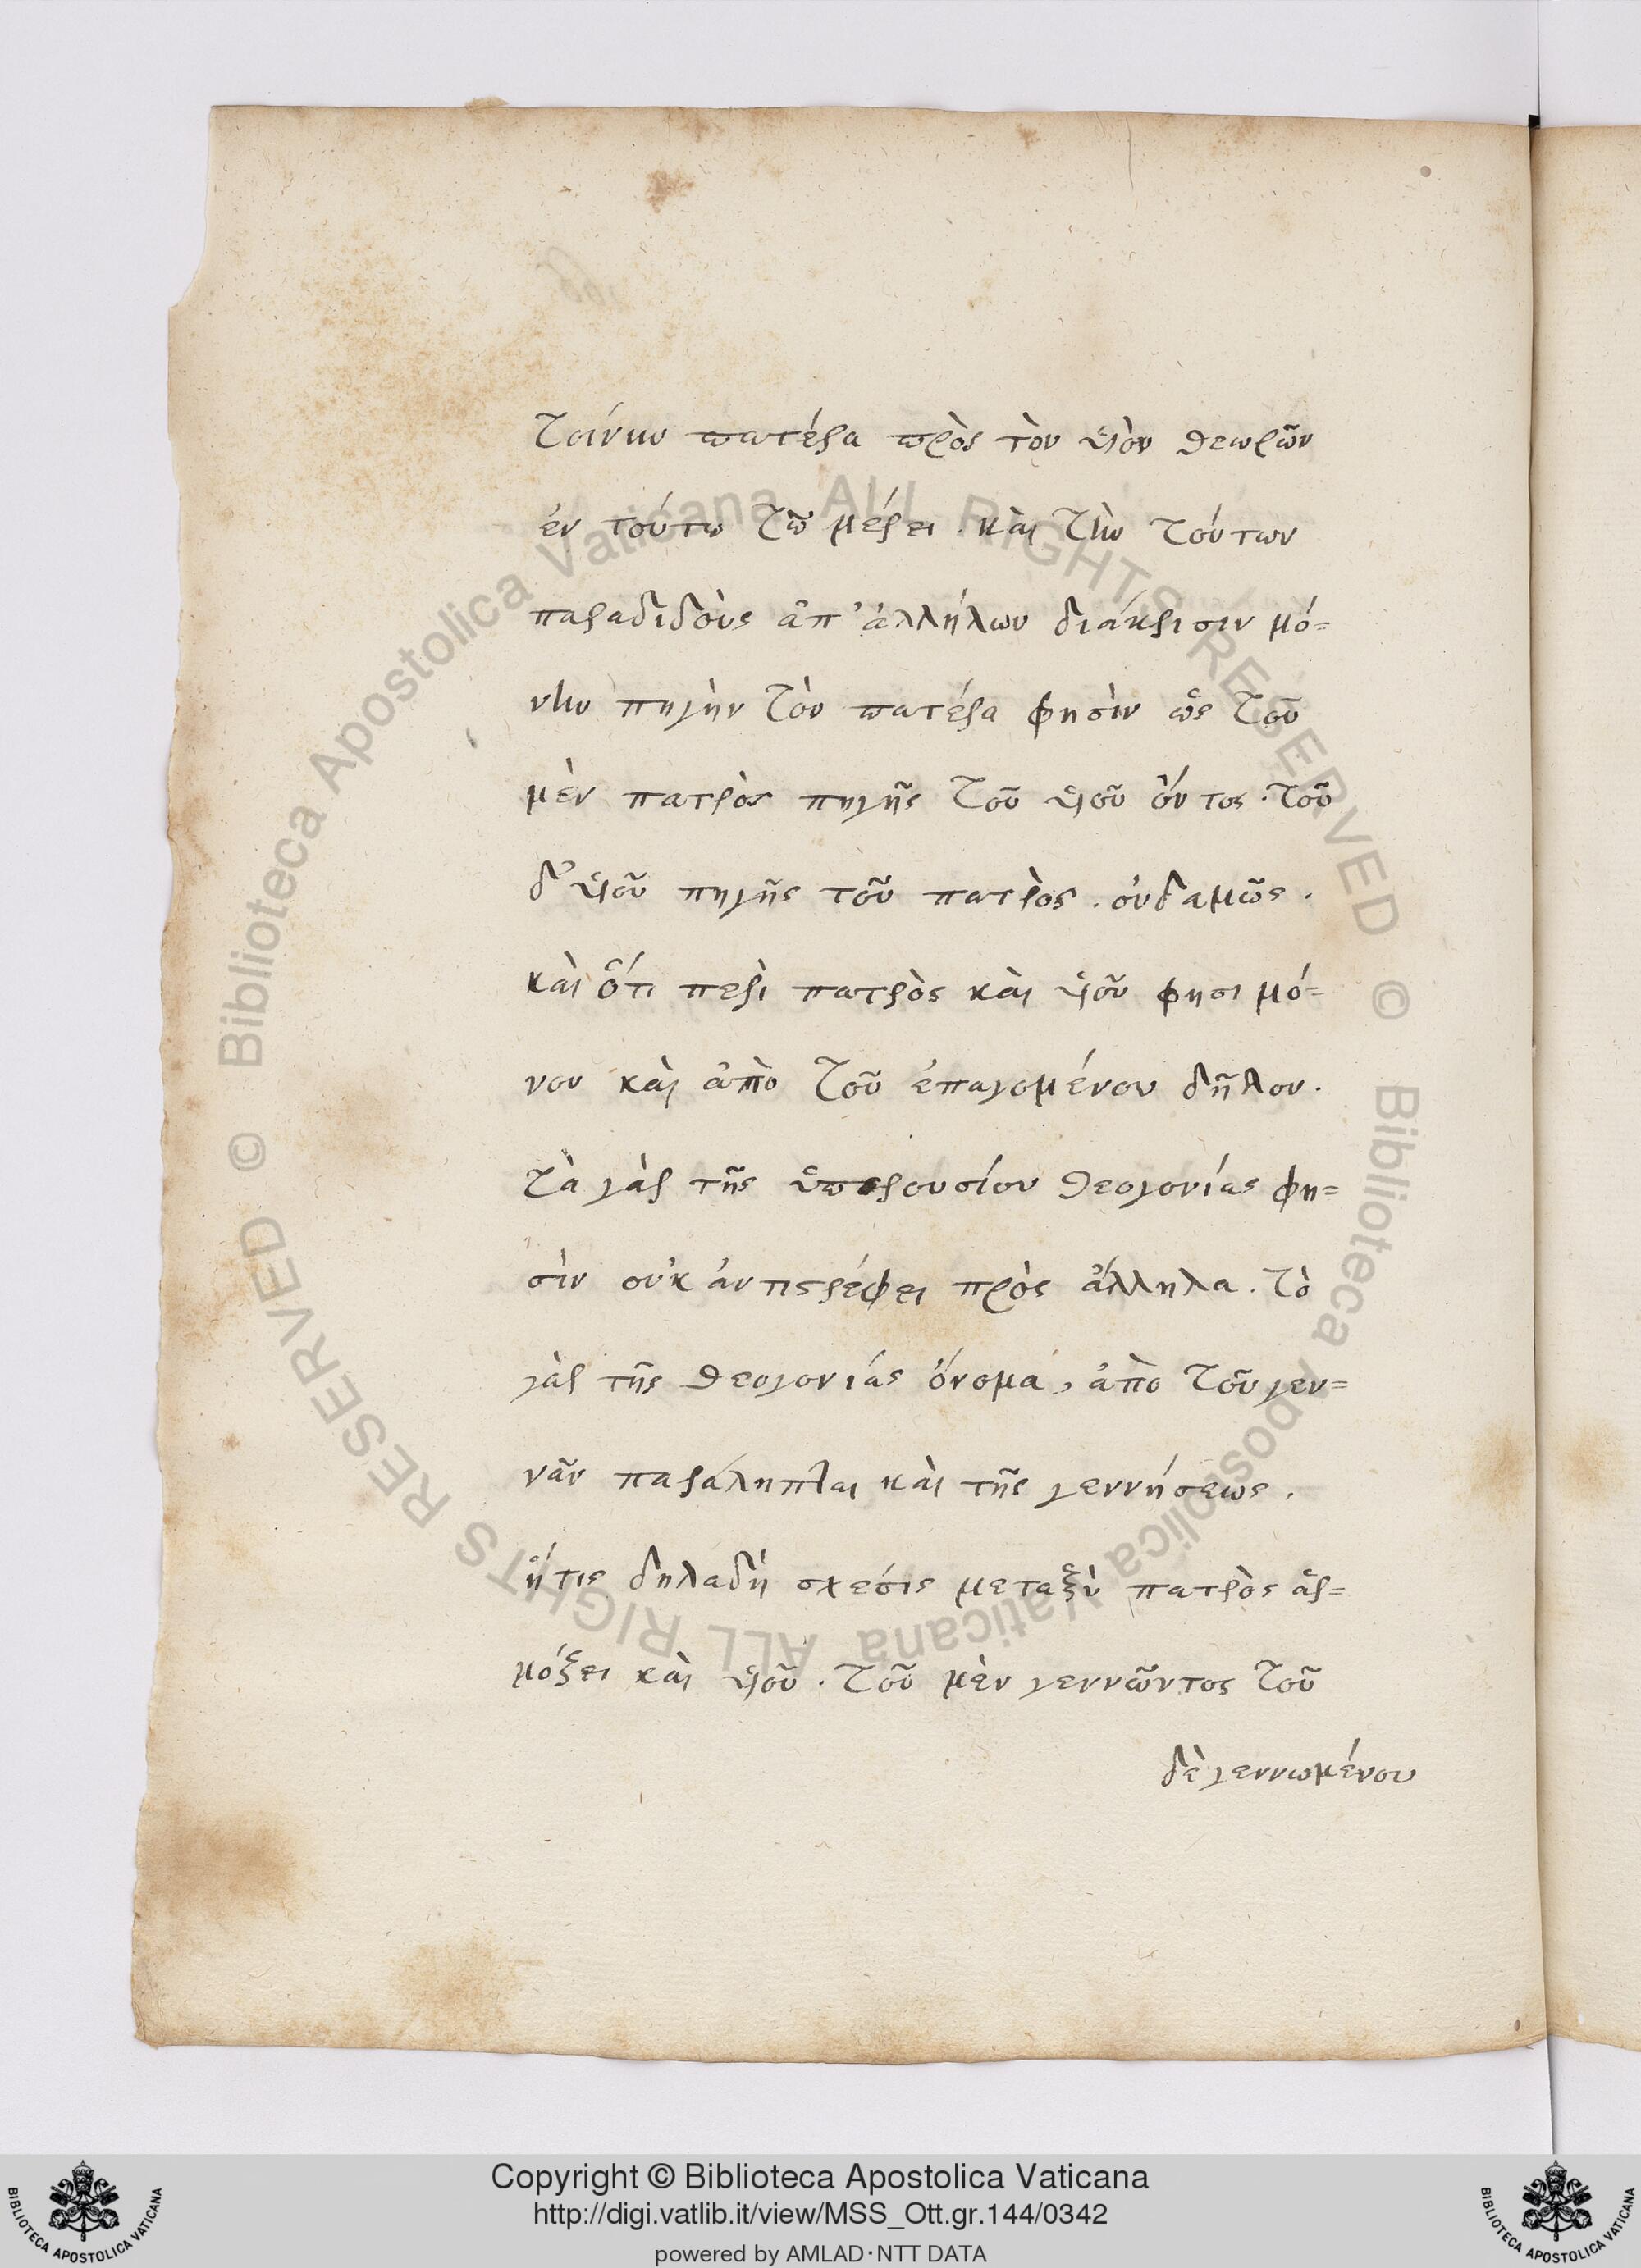 τοίνυν πατέρα πρὸς τὸν υἱὸν θεωρῶν
ἐν τούτω τῶ μέρει · καὶ τὴν τούτων
παραδιδοὺς ἀπ' ἀλλήλων διάκρισιν μό=
νην πηγὴν τὸν πατέρα φησὶν ὡς τοῦ
μὲν πατρὸς πηγῆς τοῦ υἱοῦ ὄντος · τοῦ
δ' υἱοῦ πηγῆς τοῦ πατρὸς . οὐδαμῶς .
καὶ ὅτι περὶ πατρὸς καὶ υἱοῦ φησι μό=
νου καὶ ἀπὸ τοῦ ἐπαγομένου δῆλον .
τὰ γὰρ τῆς ὑπερουσίου θεογονίας φη=
σὶν οὐκ ἀντιστρέφει πρὸς ἄλληλα . τὸ
γὰρ τῆς θεογονίας ὄνομα , ἀπὸ τοῦ γεν=
νᾶν παράληπται καὶ τῆς γεννήσεως .
ἥτις δηλαδὴ σχέσις μεταξὺ πατρὸς ἁρ=
μόζει καὶ υἱοῦ . τοῦ μὲν γεννῶντος τοῦ
δὲ γεννωμένου
© Biblioteca Apostolica Vaticana ALL RIGHTS RESERVED © Biblioteca Apostolica Vaticana ALL RIGHTS RESERVED
Copyright © Biblioteca Apostolica Vaticana
http://digi.vatlib.it/view/MSS_Ott.gr.144/0342
powered by AMLAD·NTT DATA
BIBLIOTECA APOSTOLICA VATICANA
BIBLIOTECA APOSTOLICA VATICANA